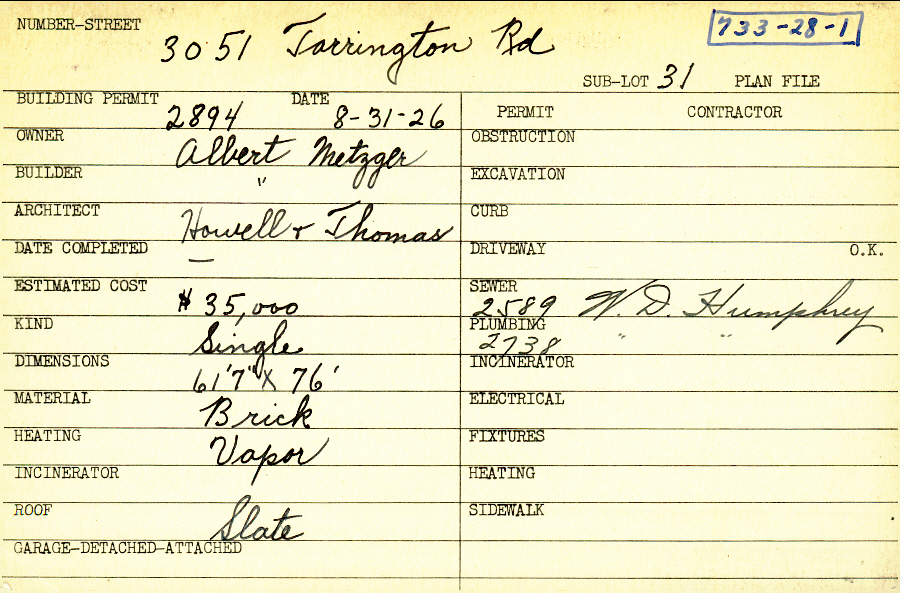 NUMBER-STREET 3051 Torrington Rd 733-28-1
SUB-LOT 31 PLAN FILE
BUILDING PERMIT 2894 DATE 8-31-26
OWNER Albert Metzger
BUILDER "
ARCHITECT Howell & Thomas
DATE COMPLETED —
ESTIMATED COST $35,000
KIND Single
DIMENSIONS 61'7" X 76'
MATERIAL Brick
HEATING Vapor
INCINERATOR
ROOF Slate
GARAGE-DETACHED-ATTACHED
PERMIT CONTRACTOR
OBSTRUCTION
EXCAVATION
CURB
DRIVEWAY O.K.
SEWER 2589 W. D. Humphrey
PLUMBING 2738 " "
INCINERATOR
ELECTRICAL
FIXTURES
HEATING
SIDEWALK